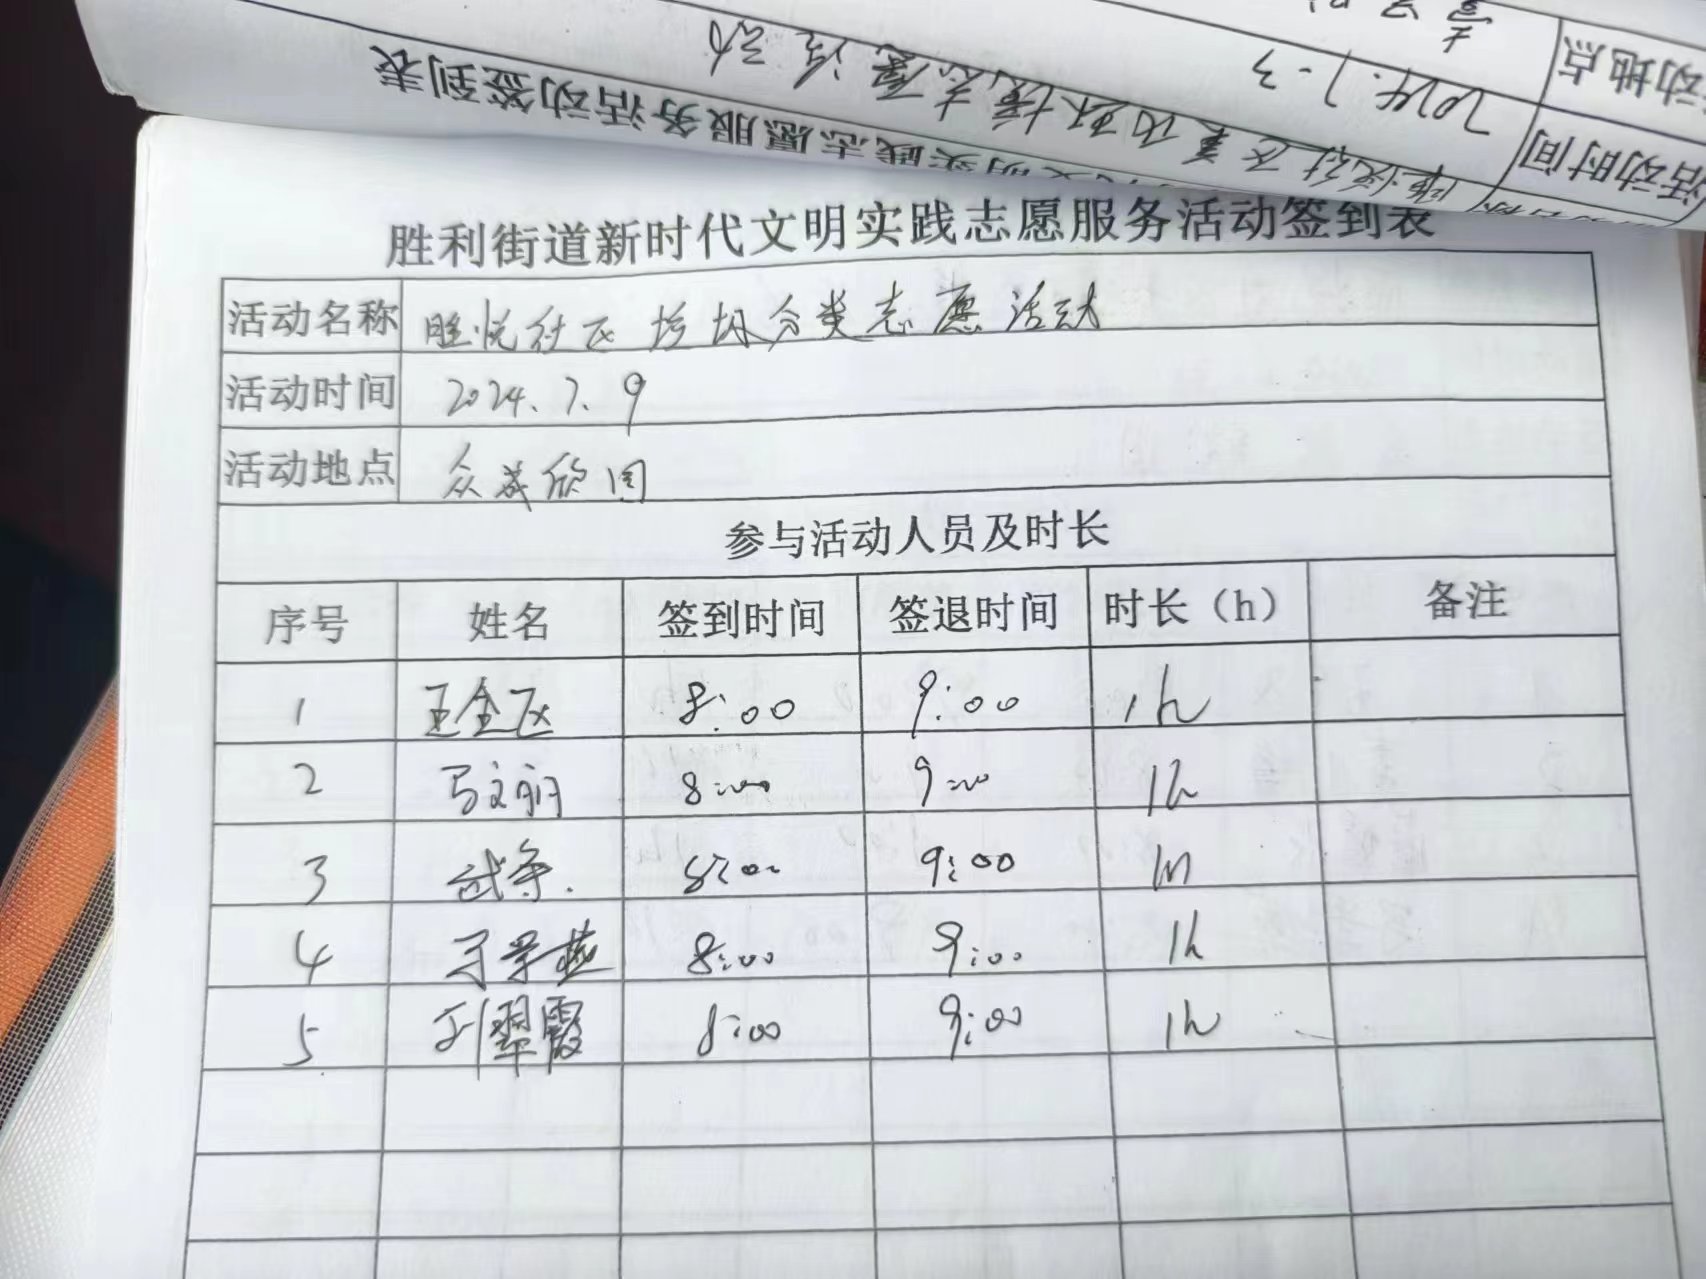 活动地点
2024.7.3
活动时间
志愿服务活动签到表
胜利街道新时代文明实践志愿服务活动签到表
活动名称 胜悦社区垃圾分类志愿活动
活动时间 2024.7.9
活动地点 众成欣园
参与活动人员及时长
序号 姓名 签到时间 签退时间 时长（h） 备注
1 8:00 9:00 1h
2 马文丽 8:00 9:00 1h
3 8:00 9:00 1h
4 8:00 9:00 1h
5 刘翠霞 8:00 9:00 1h